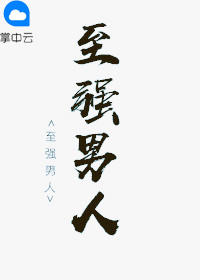 掌中云
至强男人
<至强男人>